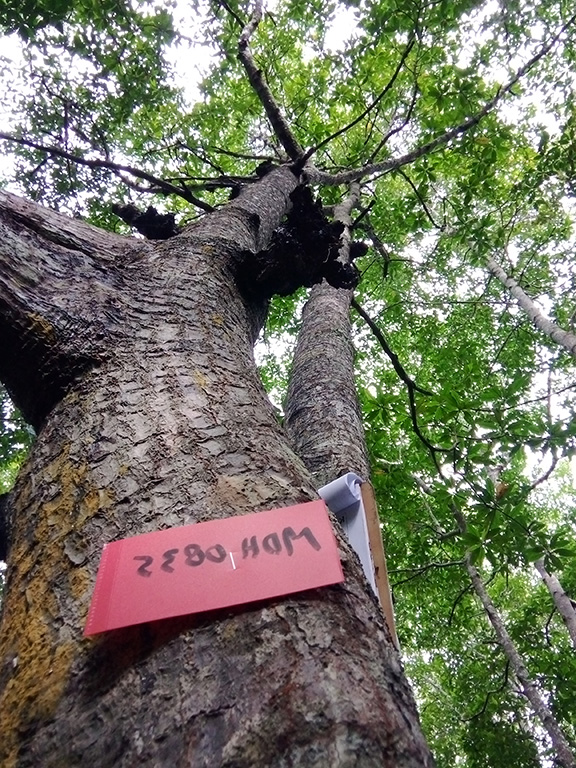 MOH 0835